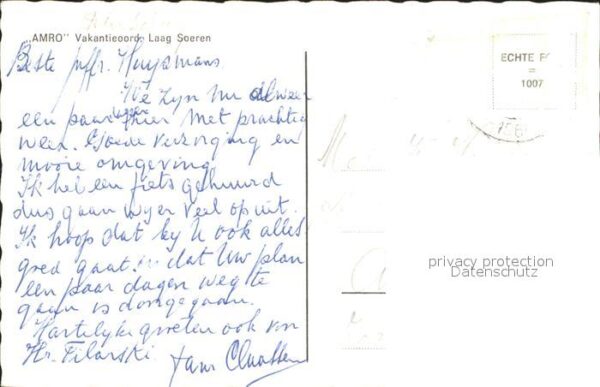 „AMRO” Vakantieoord, Laag Soeren
Beste Juffr. Huysmans
We zyn nu alweer
een paar dagen hier met prachtig
weer. Goede verzorging en
mooie omgeving.
Ik heb een fiets gehuurd
dus gaan wy er veel op uit.
Ik hoop dat by U ook alles
goed gaat en dat Uw plan
een paar dagen weg te
gaan is doorgegaan.
Hartelyke groeten ook van
Hr. Filarski.
ECHTE
=
1007
privacy protection
Datenschutz